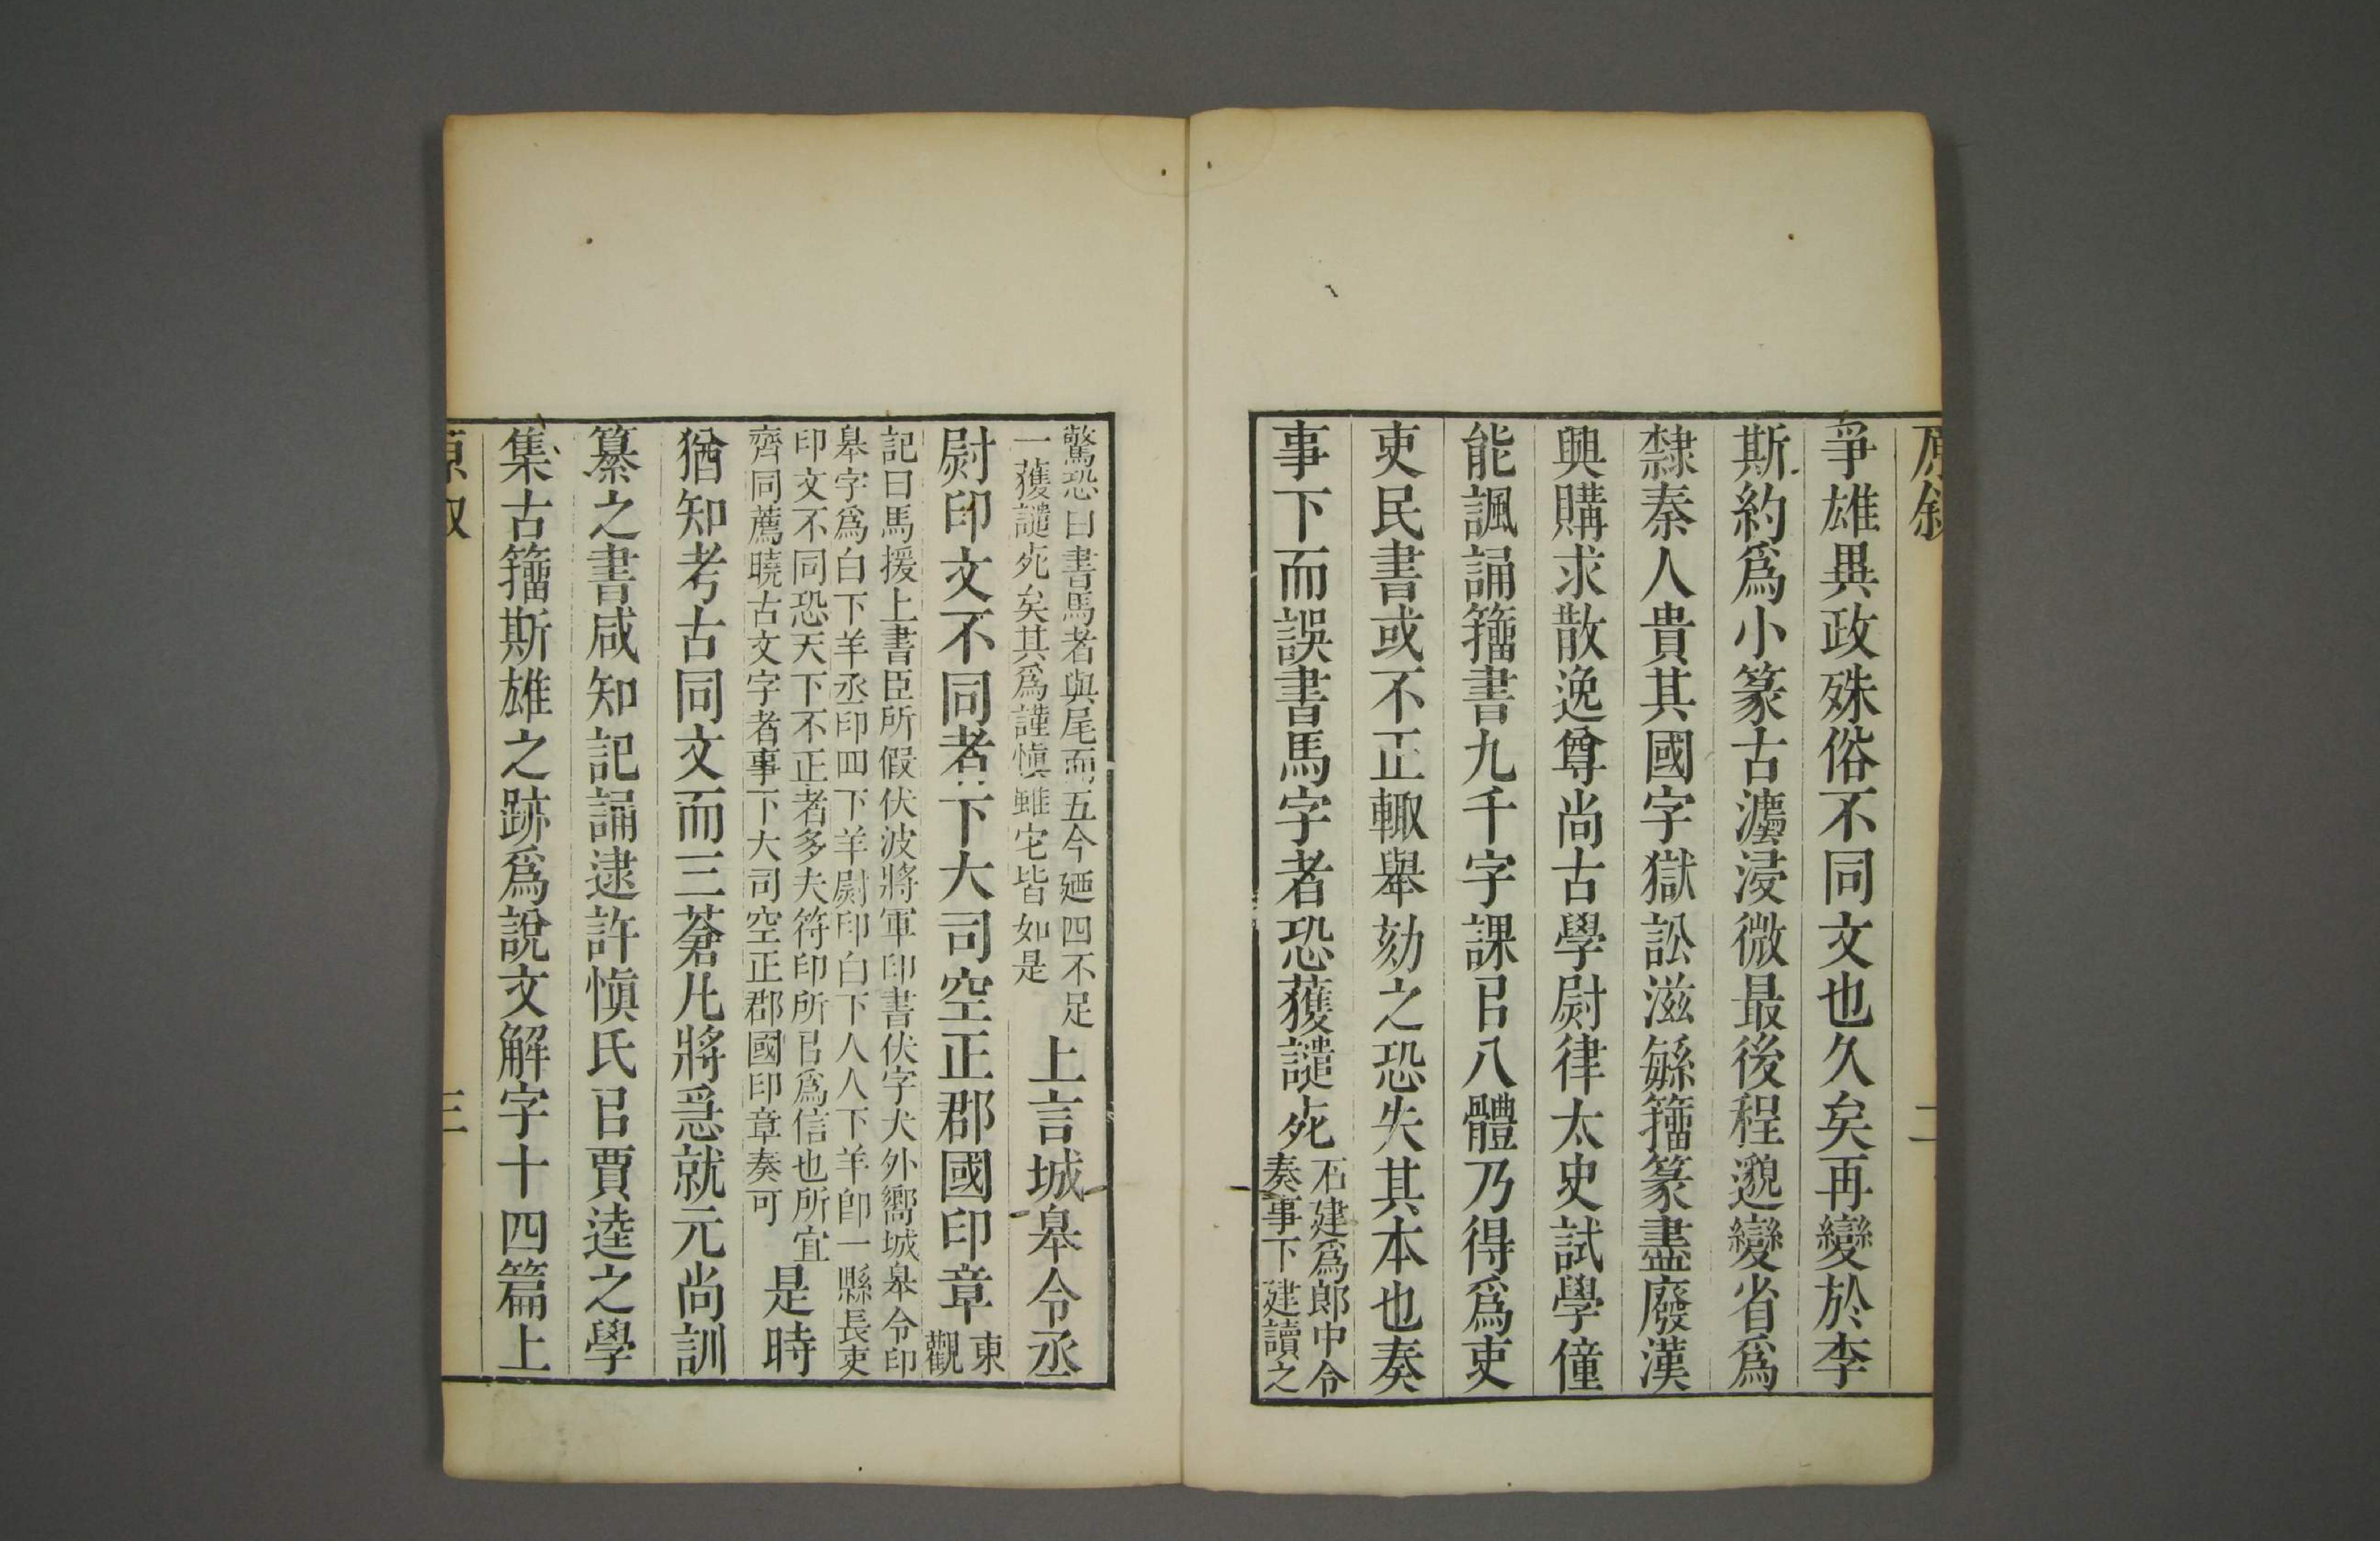 原敘 二
爭雄異政殊俗不同文也久矣再變於李
斯約爲小篆古灋浸微最後程邈變省爲
隸秦人貴其國字獄訟滋緐籒篆盡廢漢
興購求散逸尊尚古學尉律太史試學僮
能諷誦籒書九千字課㠯八體乃得爲吏
吏民書或不正輙舉劾之恐失其本也奏
事下而誤書馬字者恐獲譴死石建爲郎中令
奏事下建讀之
驚恐曰書馬者與尾而五今廼四不足
一獲譴死矣其爲謹愼雖它皆如是
上言城皋令丞
尉印文不同者下大司空正郡國印章東
觀
記曰馬援上書臣所假伏波將軍印書伏字犬外嚮城皋令印
皋字爲白下羊丞印四下羊尉印白下人人下羊卽一縣長吏
印文不同恐天下不正者多夫符印所㠯爲信也所宜
齊同薦曉古文字者事下大司空正郡國印章奏可
是時
猶知考古同文而三蒼凡將急就元尚訓
纂之書咸知記誦逮許愼氏㠯賈逵之學
集古籒斯雄之跡爲說文解字十四篇上
原敘 三